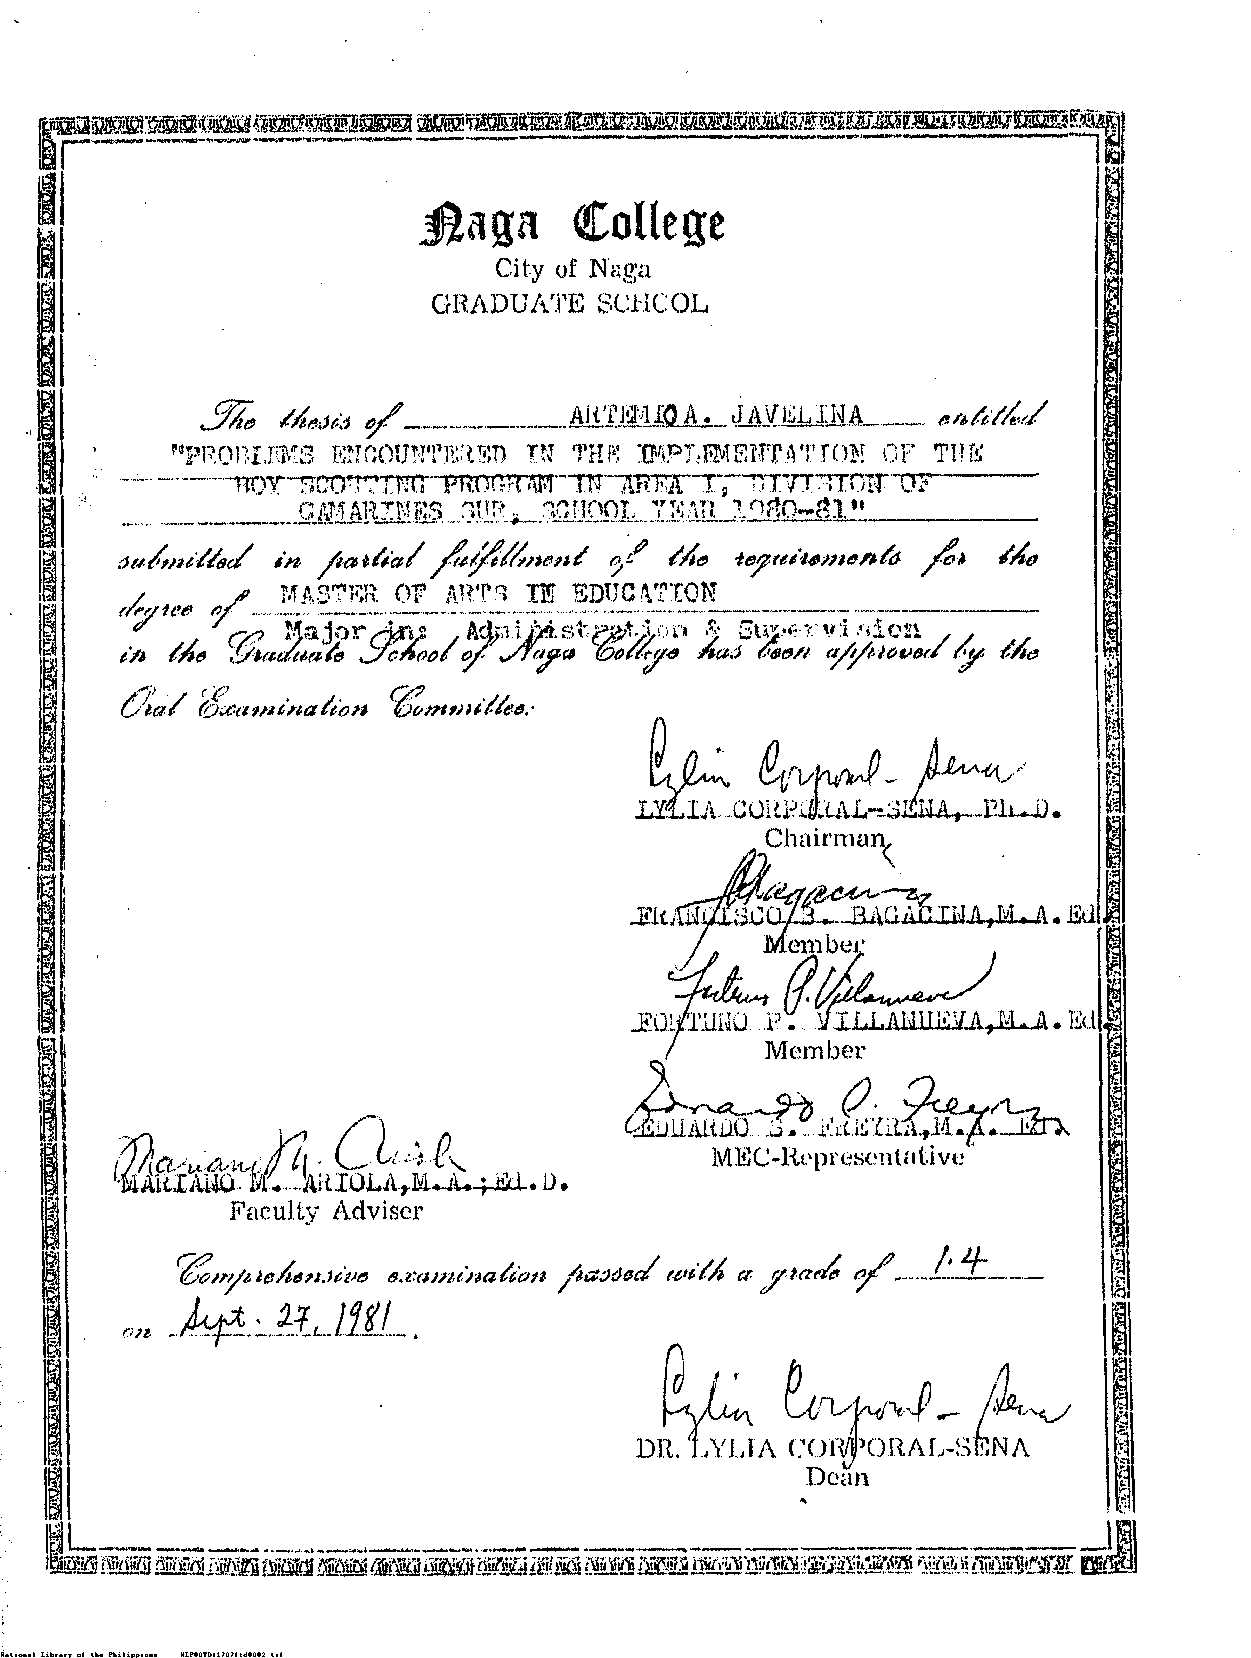 Naga College
City of Naga
GRADUATE SCHOOL
The thesis of ARTEMIO A. JAVELINA entitled
"PROBLEMS ENCOUNTERED IN THE IMPLEMENTATION OF THE
BOY SCOUTING PROGRAM IN AREA I, DIVISION OF
CAMARINES SUR, SCHOOL YEAR 1980-81"
submitted in partial fulfillment of the requirements for the
degree of MASTER OF ARTS IN EDUCATION
Major in: Administration & Supervision
in the Graduate School of Naga College has been approved by the
Oral Examination Committee:
Lylia Corporal-Sena
LYLIA CORPORAL-SENA, Ph.D.
Chairman
FRANCISCO B. BAGACINA, M.A.Ed.
Member
Fortuno P. Villanueva
FORTUNO P. VILLANUEVA, M.A.Ed.
Member
EDUARDO S. FREYRA, M.A. Ed.
MEC-Representative
Mariano M. Ariola
MARIANO M. ARIOLA, M.A.; Ed.D.
Faculty Adviser
Comprehensive examination passed with a grade of 1.4
on Sept. 27, 1981.
Lylia Corporal-Sena
DR. LYLIA CORPORAL-SENA
Dean
National Library of the Philippines